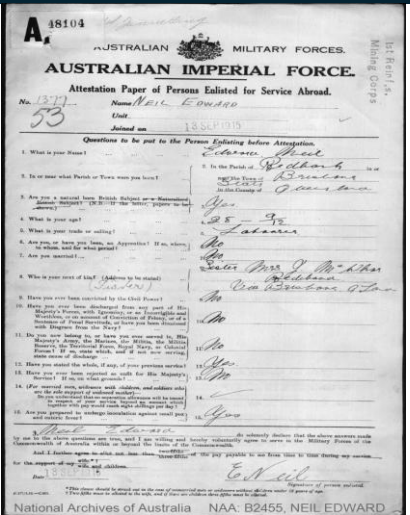 A. 48104
AUSTRALIAN MILITARY FORCES.
AUSTRALIAN IMPERIAL FORCE.
Attestation Paper of Persons Enlisted for Service Abroad.
No. 1377 Name NEIL EDWARD
53
Unit
Joined on 18 SEP 1915
1st Reinfs.
Mining Corps
Questions to be put to the Person Enlisting before Attestation.
1. What is your Name? 1. Edward Neil
2. In or near what Parish or Town were you born? 2. In the Parish of Redbank in or
near the Town of Brisbane
in the County of Queensland
3. Are you a natural born British Subject or a Naturalized
British Subject? (N.B.—If the latter, papers to be
shown.) 3. Yes
4. What is your age? 4. 28 9/12
5. What is your trade or calling? 5. Labourer
6. Are you, or have you been, an Apprentice? If so, where,
to whom, and for what period? 6. No
7. Are you married? 7. No
8. Who is your next of kin? (Address to be stated) 8. Sister Mrs
(Sister) Redbank
Via Brisbane
9. Have you ever been convicted by the Civil Power? 9. No
10. Have you ever been discharged from any part of His
Majesty's Forces, with Ignominy, or as Incorrigible and
Worthless, or on account of Conviction of Felony, or of a
Sentence of Penal Servitude, or have you been dismissed
with Disgrace from the Navy? 10. No
11. Do you now belong to, or have you ever served in, His
Majesty's Army, the Marines, the Militia, the Militia
Reserve, the Territorial Force, Royal Navy, or Colonial
Forces? If so, state which, and if not now serving,
state cause of discharge 11. No
12. Have you stated the whole, if any, of your previous service? 12. Yes
13. Have you ever been rejected as unfit for His Majesty's
Service? If so, on what grounds? 13. No
14. (For married men, widowers with children, and soldiers who
are the sole support of widowed mother)—
Do you understand that no separation allowance will be issued
in respect of your service beyond an amount which
together with pay would reach eight shillings per day? 14.
15. Are you prepared to undergo inoculation against small pox
and enteric fever? 15. Yes
I, Neil Edward do solemnly declare that the above answers made
by me to the above questions are true, and I am willing and hereby voluntarily agree to serve in the Military Forces of the
Commonwealth of Australia within or beyond the limits of the Commonwealth.
And I further agree to allot not less than two-fifths three-fifths of the pay payable to me from time to time during my service
for the support of my wife wife and children.
Date E Neil
Signature of person enlisted.
National Archives of Australia NAA: B2455, NEIL EDWARD